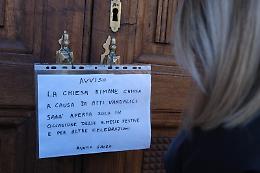 AVVISO
LA CHIESA RIMANE CHIUSA
A CAUSA DI ATTI VANDALICI
SARA' APERTA SOLO IN
OCCASIONE DELLE S. MESSE FESTIVE
E PER ALTRE CELEBRAZIONI